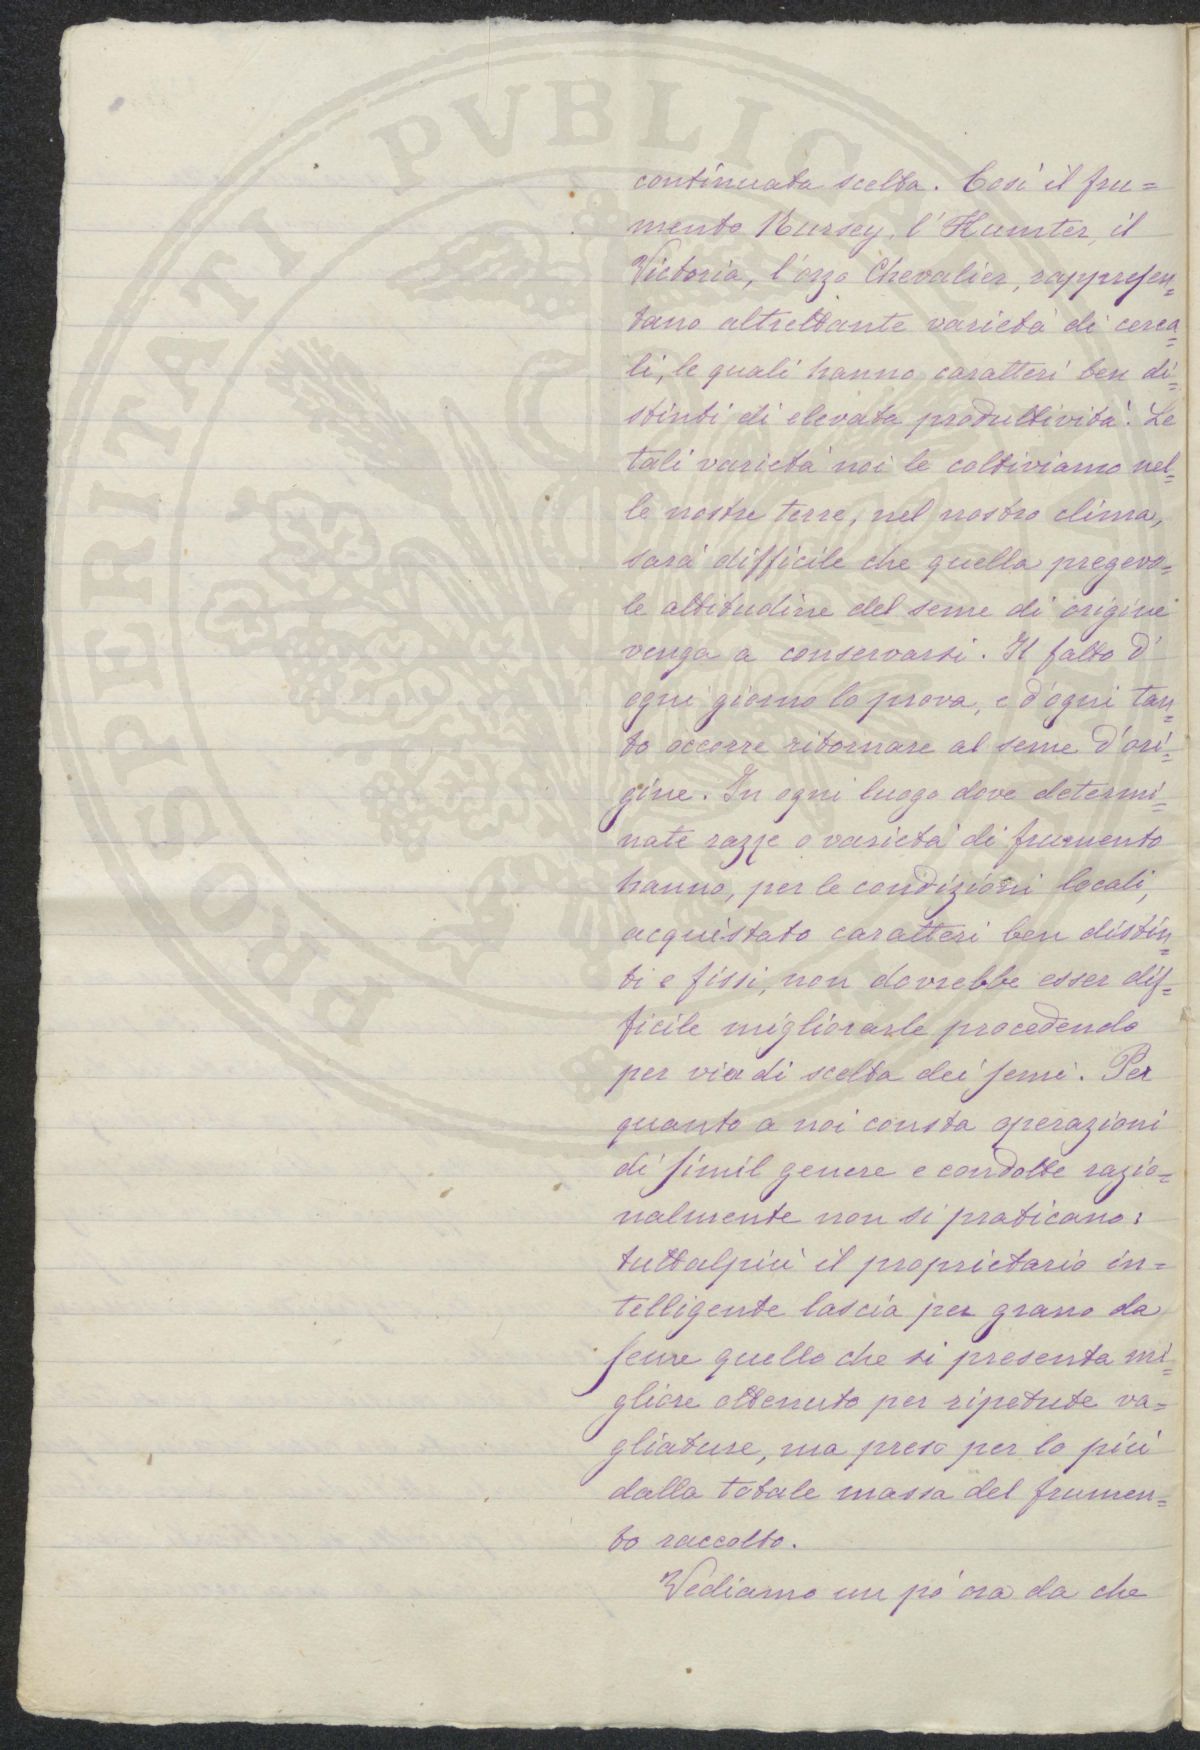 continuata scelta. Così il fru=
mento Kursey, l'Hunter, il
Victoria, l'orzo Chevalier, rappresen=
tano altrettante varietà di cerea=
li, le quali hanno caratteri ben di=
stinti di elevata produttività. Se
tali varietà noi le coltiviamo nel=
le nostre terre, nel nostro clima,
sarà difficile che quella pregevo=
le attitudine del seme di origine
venga a conservarsi. Il fatto d'
ogni giorno lo prova, e d'ogni tan=
to occorre ritornare al seme d'ori=
gine. In ogni luogo dove determi=
nate razze o varietà di frumento
hanno, per le condizioni locali,
acquistato caratteri ben distin=
ti e fissi, non dovrebbe esser dif=
ficile migliorarle procedendo
per via di scelta dei semi. Per
quanto a noi consta operazioni
di simil genere e condotte razio=
nalmente non si praticano:
tuttalpiù il proprietario in=
telligente lascia per grano da
seme quello che si presenta mi=
gliore ottenuto per ripetute va=
gliature, ma preso per lo più
dalla totale massa del frumen=
to raccolto.
Vediamo un pò ora da che
PROSPERITATI PVBLICAE